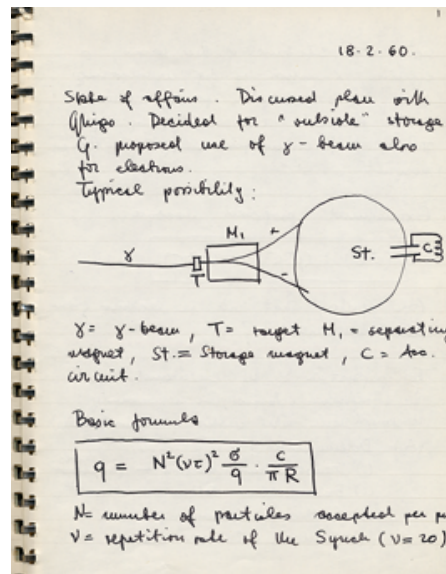 1
18.2.60.
State of affairs. Discussed plan with
Ghigo. Decided for "outside" storage
G. proposed use of γ-beam also
for electrons.
Typical possibility:
M₁
+
γ
St.
C
-
T
γ = γ-beam, T = target M₁ = separating
magnet, St. = Storage magnet, C = Acc.
circuit.
Basic formula
q = N²(ντ)² σ/q · c/πR
N = number of particles accepted per
ν = repetition rate of the Synch (ν = 20)